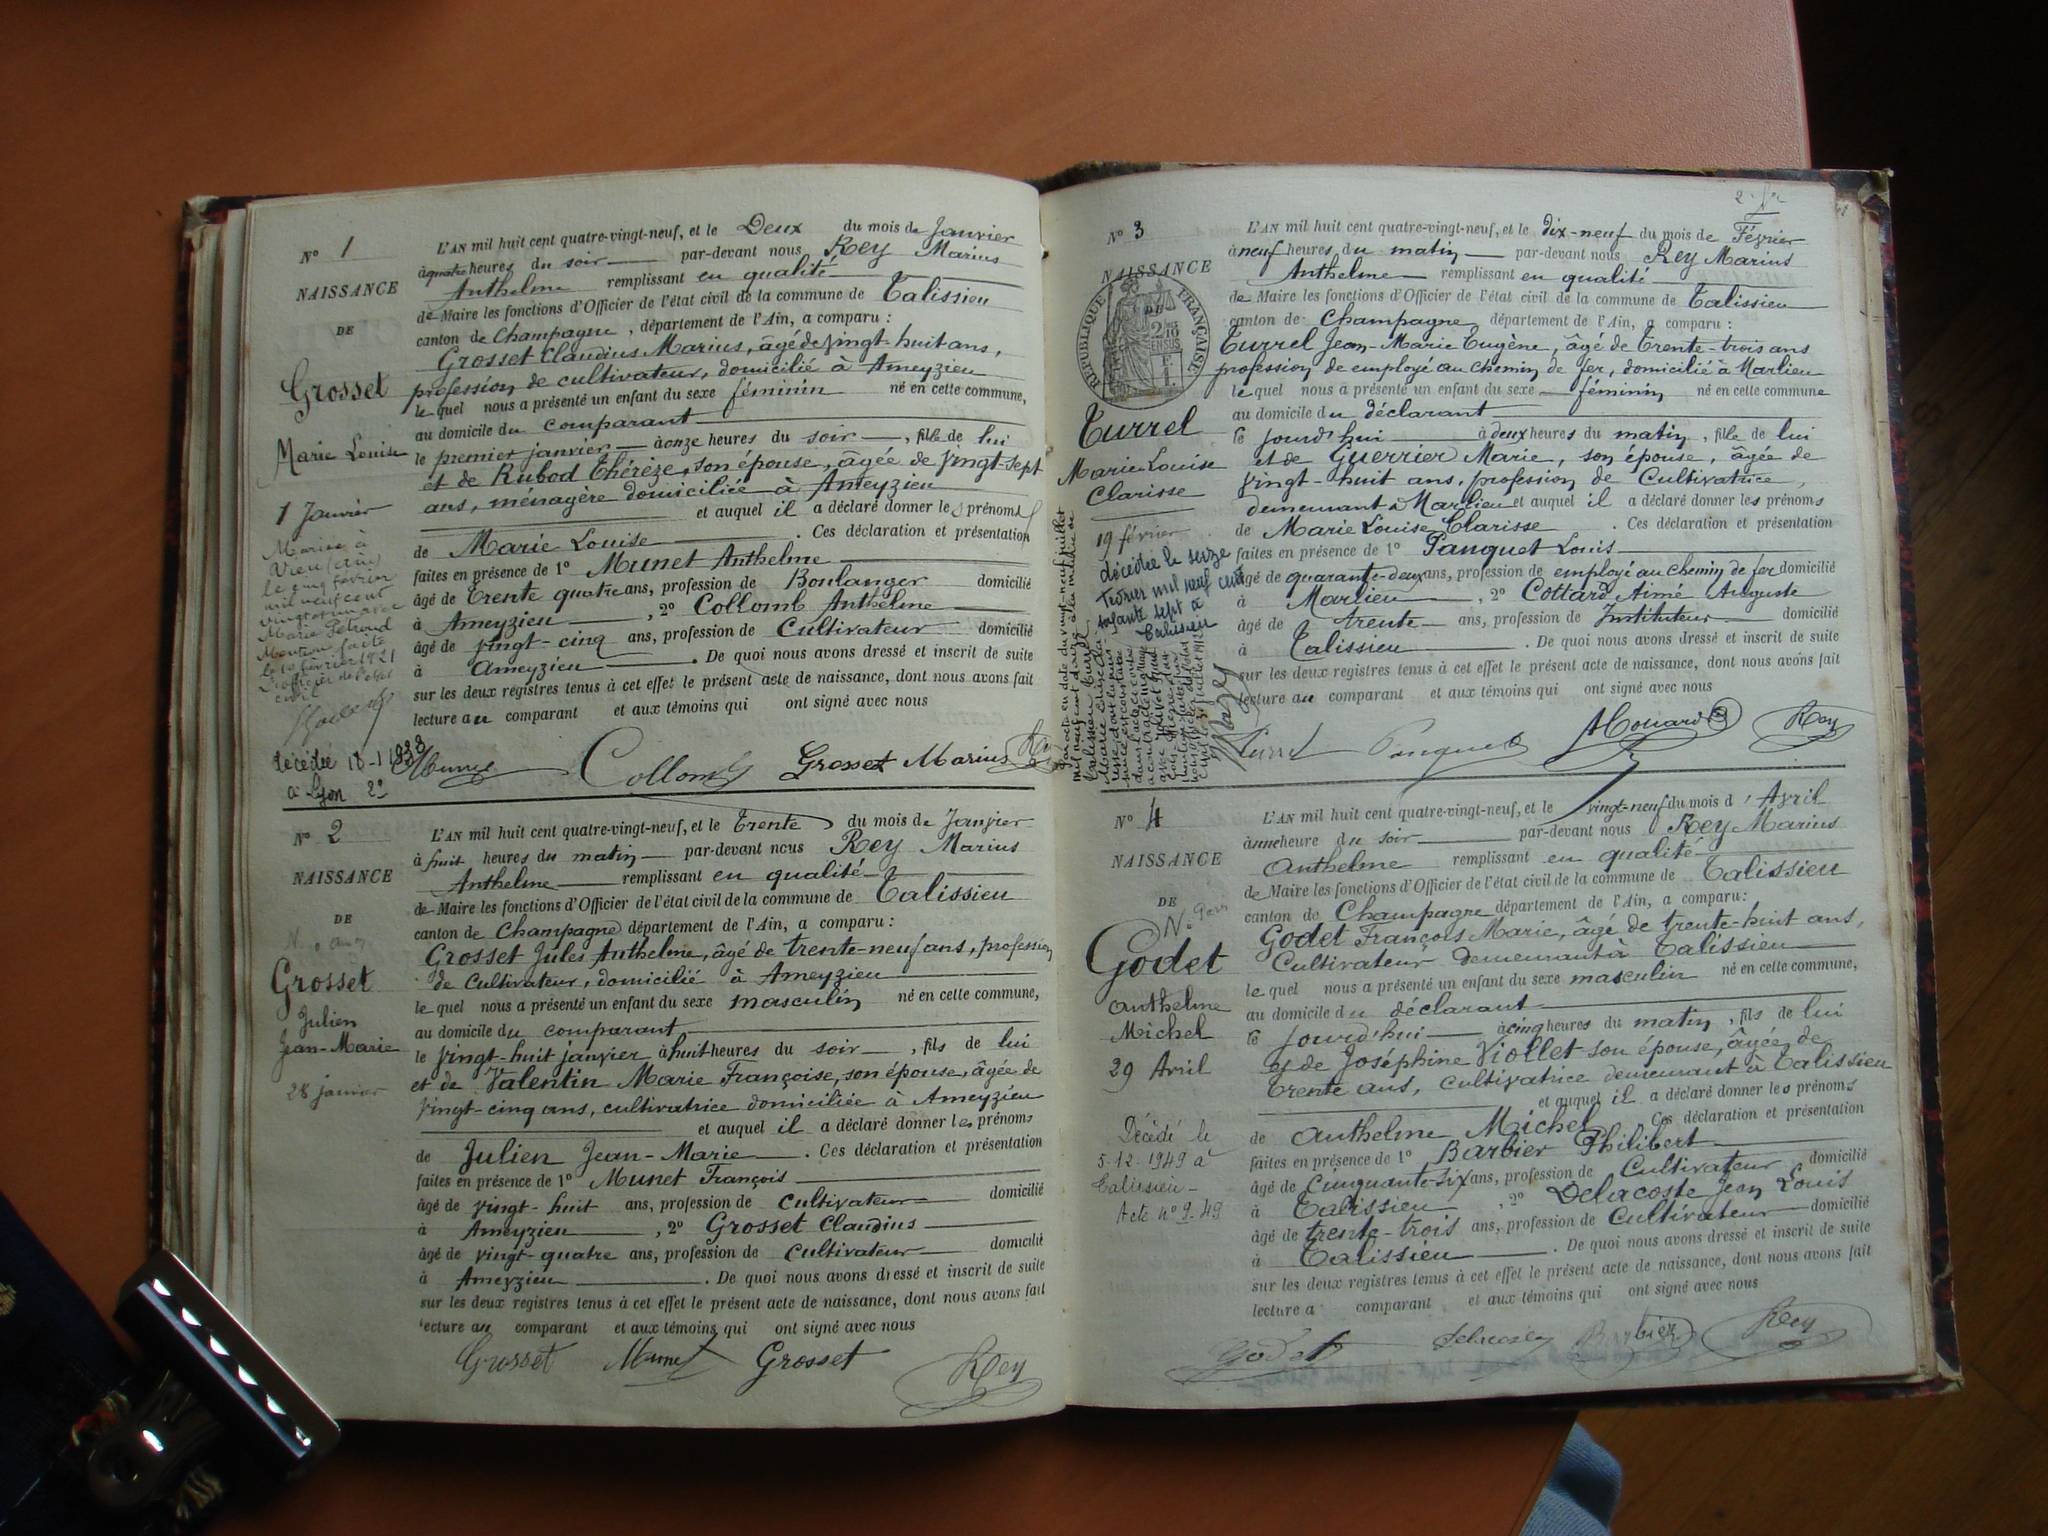 N° 1
NAISSANCE
DE
Grosset
Marie Louise
1 Janvier
Mariée à
Vieu (Ain)
le cinq février
mil neuf cent
vingt et un avec
Marie Petroud
Mention faite
le 10 février 1921
L'officier de l'état
civil
décédée 18-1 1933
à Lyon 2e
L'AN mil huit cent quatre-vingt-neuf, et le Deux du mois de Janvier
à quatre heures du soir par-devant nous Rey Marius
Anthelme remplissant en qualité
de Maire les fonctions d'Officier de l'état civil de la commune de Talissieu
canton de Champagne, département de l'Ain, a comparu :
Grosset Claudius Marius, âgé de vingt-huit ans,
profession de cultivateur, domicilié à Ameyzieu
lequel nous a présenté un enfant du sexe féminin né en cette commune,
au domicile du comparant
le premier janvier à onze heures du soir, fille de lui
et de Rubod Thérèze, son épouse, âgée de vingt-sept
ans, ménagère domiciliée à Ameyzieu
et auquel il a déclaré donner les prénoms
de Marie Louise. Ces déclaration et présentation
faites en présence de 1° Munet Anthelme
âgé de trente quatre ans, profession de Boulanger domicilié
à Ameyzieu, 2° Collomb Anthelme
âgé de vingt-cinq ans, profession de Cultivateur domicilié
à Ameyzieu. De quoi nous avons dressé et inscrit de suite
sur les deux registres tenus à cet effet le présent acte de naissance, dont nous avons fait
lecture au comparant et aux témoins qui ont signé avec nous
Munet Collomb Grosset Marius Rey
N° 2
NAISSANCE
DE
Grosset
Julien
Jean-Marie
28 janvier
L'AN mil huit cent quatre-vingt-neuf, et le Trente du mois de Janvier
à huit heures du matin par-devant nous Rey Marius
Anthelme remplissant en qualité
de Maire les fonctions d'Officier de l'état civil de la commune de Talissieu
canton de Champagne département de l'Ain, a comparu :
Grosset Jules Anthelme, âgé de trente-neuf ans, profession
de Cultivateur, domicilié à Ameyzieu
lequel nous a présenté un enfant du sexe masculin né en cette commune,
au domicile du comparant,
le vingt-huit janvier à huit heures du soir, fils de lui
et de Valentin Marie Françoise, son épouse, âgée de
vingt-cinq ans, cultivatrice domiciliée à Ameyzieu
et auquel il a déclaré donner les prénoms
de Julien Jean-Marie. Ces déclaration et présentation
faites en présence de 1° Munet François
âgé de vingt-huit ans, profession de cultivateur domicilié
à Ameyzieu, 2° Grosset Claudius
âgé de vingt-quatre ans, profession de cultivateur domicilié
à Ameyzieu. De quoi nous avons dressé et inscrit de suite
sur les deux registres tenus à cet effet le présent acte de naissance, dont nous avons fait
lecture au comparant et aux témoins qui ont signé avec nous
Grosset Munet Grosset Rey
N° 3
NAISSANCE
DE
RÉPUBLIQUE FRANÇAISE
Turrel
Marie Louise
Clarisse
19 février
décédée le seize
février mil neuf cent
soixante sept à
Talissieu
L'AN mil huit cent quatre-vingt-neuf, et le dix-neuf du mois de Février
à neuf heures du matin par-devant nous Rey Marius
Anthelme remplissant en qualité
de Maire les fonctions d'Officier de l'état civil de la commune de Talissieu
canton de Champagne département de l'Ain, a comparu :
Turrel Jean-Marie Eugène, âgé de trente-trois ans
profession de employé au chemin de fer, domicilié à Marlieu
lequel nous a présenté un enfant du sexe féminin né en cette commune
au domicile du déclarant
le jourd'hui à deux heures du matin, fille de lui
et de Guerrier Marie, son épouse, âgée de
vingt-huit ans, profession de Cultivatrice,
demeurant à Marlieu et auquel il a déclaré donner les prénoms
de Marie Louise Clarisse. Ces déclaration et présentation
faites en présence de 1° Panquet Louis
âgé de quarante-deux ans, profession de employé au chemin de fer domicilié
à Marlieu, 2° Cottard Aimé Auguste
âgé de trente ans, profession de Instituteur domicilié
à Talissieu. De quoi nous avons dressé et inscrit de suite
sur les deux registres tenus à cet effet le présent acte de naissance, dont nous avons fait
lecture au comparant et aux témoins qui ont signé avec nous
Turrel Panquet Rey
N° 4
NAISSANCE
DE
Godet
Anthelme
Michel
29 Avril
Décédé le
5.12.1949 à
Talissieu -
Acte n° 9.49
L'AN mil huit cent quatre-vingt-neuf, et le vingt-neuf du mois d'Avril
à une heure du soir par-devant nous Rey Marius
Anthelme remplissant en qualité
de Maire les fonctions d'Officier de l'état civil de la commune de Talissieu
canton de Champagne département de l'Ain, a comparu :
Godet François Marie, âgé de trente-huit ans,
Cultivateur demeurant à Talissieu
lequel nous a présenté un enfant du sexe masculin né en cette commune,
au domicile du déclarant
le jourd'hui à cinq heures du matin, fils de lui
et de Joséphine Viollet son épouse, âgée de
trente ans, cultivatrice demeurant à Talissieu
et auquel il a déclaré donner les prénoms
de Anthelme Michel Ces déclaration et présentation
faites en présence de 1° Barbier Philibert
âgé de Cinquante-six ans, profession de Cultivateur domicilié
à Talissieu, 2° Delacoste Jean Louis
âgé de trente-trois ans, profession de Cultivateur domicilié
à Talissieu. De quoi nous avons dressé et inscrit de suite
sur les deux registres tenus à cet effet le présent acte de naissance, dont nous avons fait
lecture a comparant et aux témoins qui ont signé avec nous
Godet Delacoste Barbier Rey